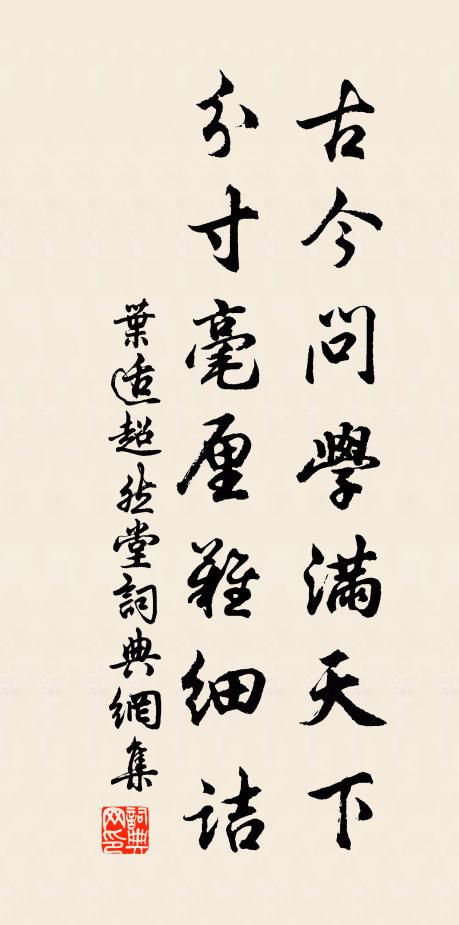 古今問學滿天下
分寸毫厘難細詰
葉适超然堂詞典網集
詞典网印